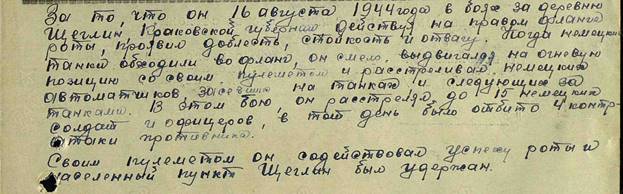 За то, что он 16 августа 1944 года в боях за деревню
Щеглин, Краковской губернии действуя на правом фланге
роты, проявил доблесть, стойкость и отвагу. Когда немецкие
танки обходили во фланг, он смело выдвигался на огневую
позицию со своим пулеметом и расстреливал немецких
автоматчиков, засевших на танках и следующих за
танками. В этом бою, он расстрелял до 15 немецких
солдат и офицеров, в той день было отбито 4 контр-
атаки противника.
Своим пулеметом он содействовал успеху роты и
населенный пункт Щеглин был удержан.